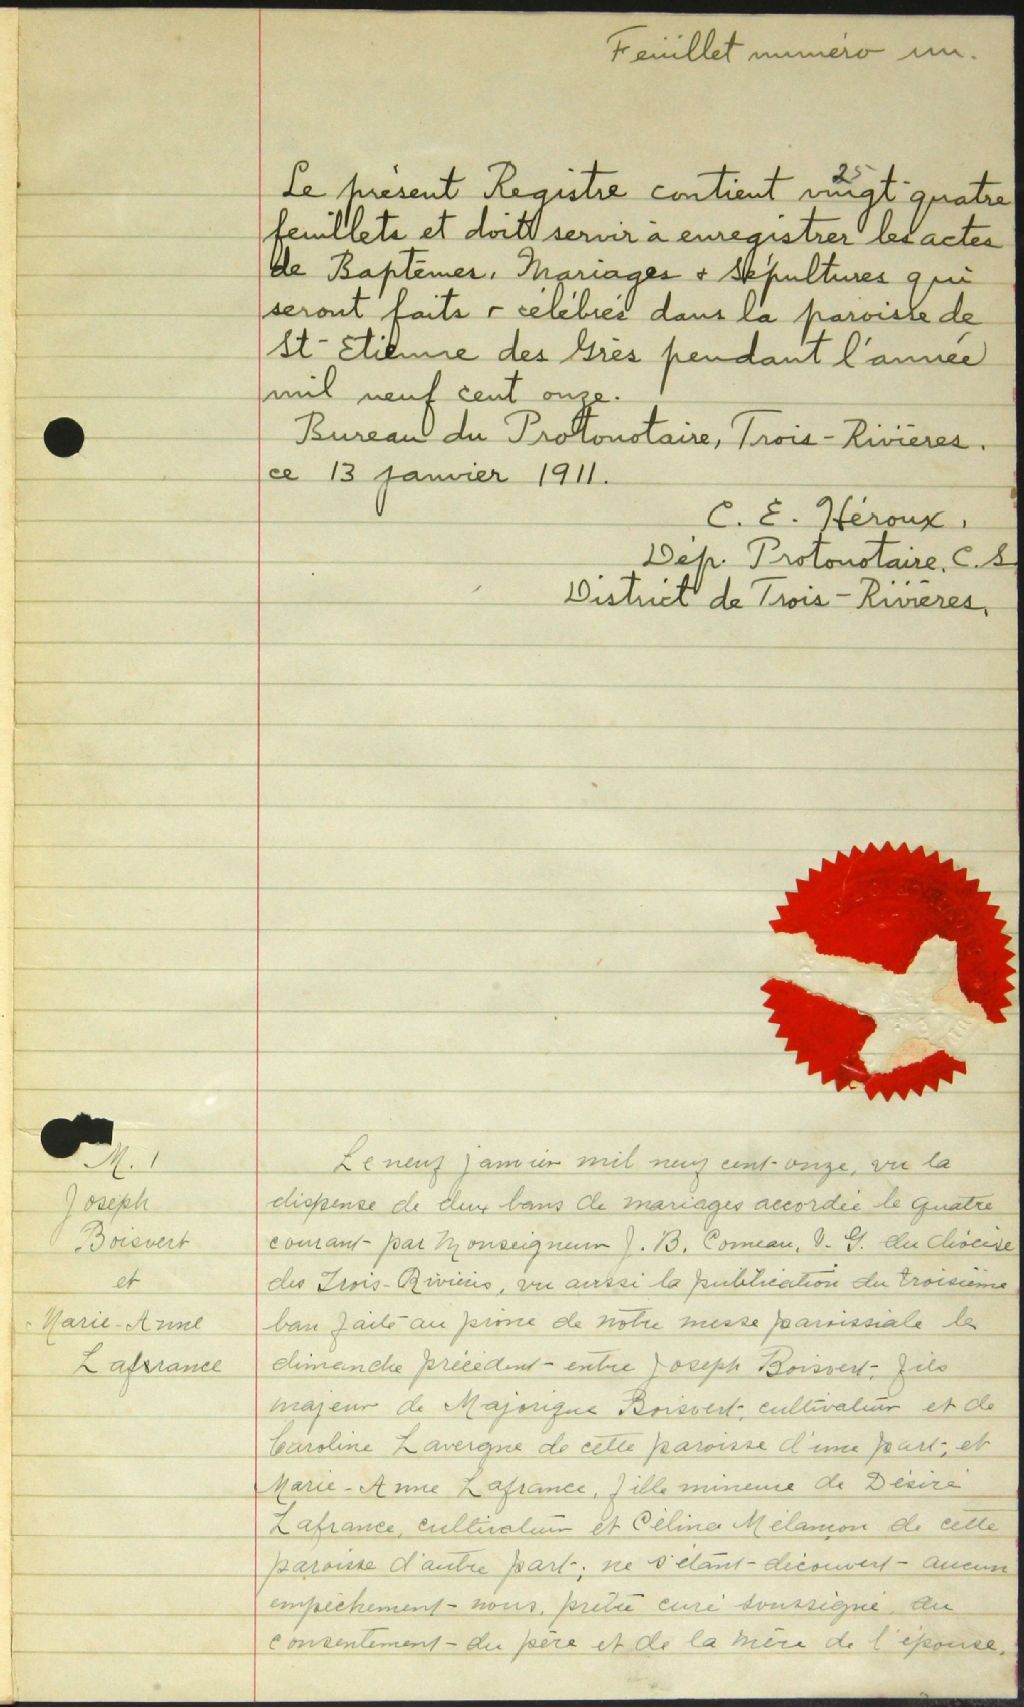 Feuillet numéro un.
Le présent Registre contient vingt-quatre
25
feuillets et doit servir à enregistrer les actes
de Baptêmes, Mariages & Sépultures qui
seront faits & célébrés dans la paroisse de
St-Etienne des Grès pendant l'année
mil neuf cent onze.
Bureau du Protonotaire, Trois-Rivières.
ce 13 janvier 1911.
C. E. Héroux,
Dép. Protonotaire, C. S
District de Trois-Rivières,
M. 1
Joseph
Boisvert
et
Marie-Anne
Lafrance
Le neuf janvier mil neuf cent onze, vu la
dispense de deux bans de mariages accordée le quatre
courant par Monseigneur J. B. Comeau, V. G. du diocèse
des Trois-Rivières, vu aussi la publication du troisième
ban faite au prône de notre messe paroissiale le
dimanche précédent entre Joseph Boisvert, fils
majeur de Majorique Boisvert, cultivateur et de
Caroline Lavergne de cette paroisse d'une part, et
Marie-Anne Lafrance, fille mineure de Désiré
Lafrance, cultivateur et Célina Mélançon de cette
paroisse d'autre part; ne s'étant découvert aucun
empêchement nous, prêtre curé soussigné, du
consentement du père et de la mère de l'épouse,